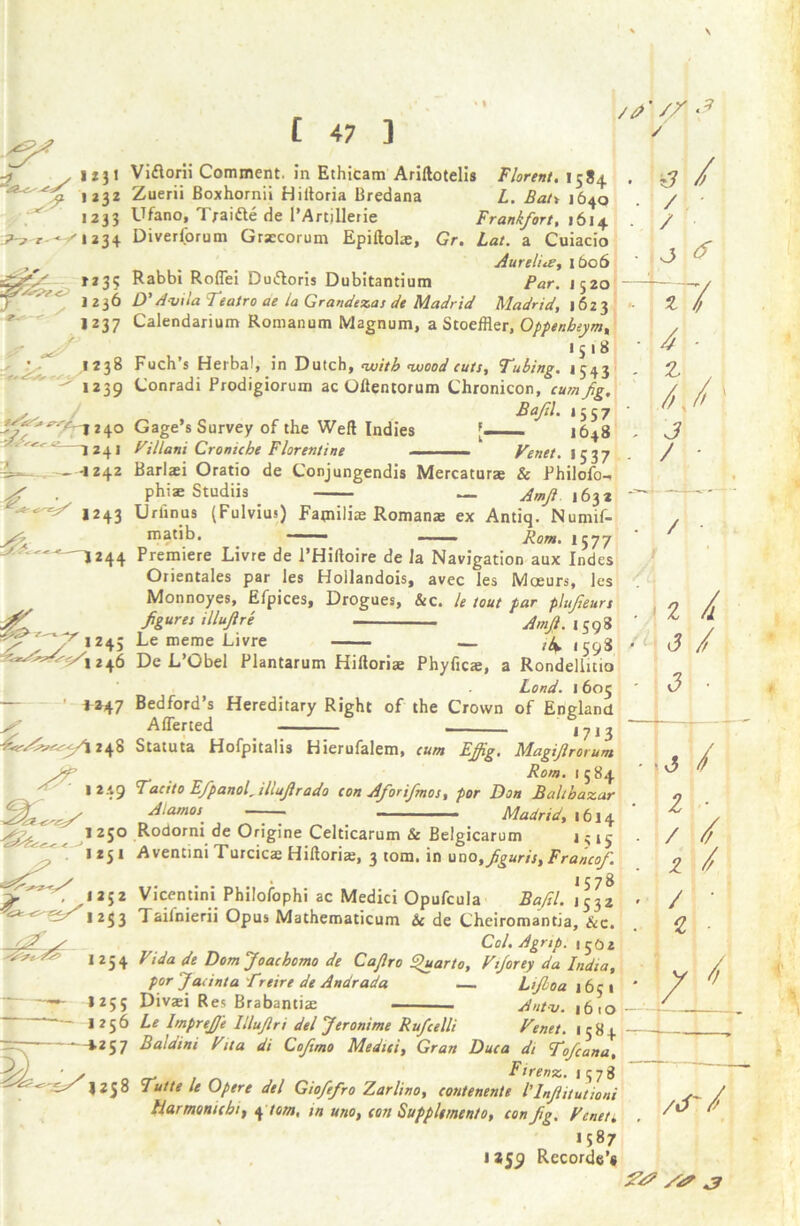 [ 47 ]
1231 Victorii Comment. in Ethicam Aristotelis Florent. 1584
1232 Zuerii Boxhornii Historia Bredana L. Bat. 1640
1233 Ufano, Traicté de l'Artillerie Frankfort, 1614
1234 Diverſorum Græcorum Epiſtolæ, Gr. Lat. a Cuiacio
Aureliæ, 1606
1235 Rabbi Roſſei Ductoris Dubitantium Par. 1520
1236 D'Avila Teatro de la Grandezas de Madrid Madrid, 1623
1237 Calendarium Romanum Magnum, a Stoeffler, Oppenheym,
1518
1238 Fuch's Herbal, in Dutch, with wood cuts, Tubing. 1543
1239 Conradi Prodigiorum ac Oſtentorum Chronicon, cum fig.
Baſil. 1557
1240 Gage's Survey of the Weſt Indies 1648
1241 Villani Croniche Florentine —— Venet. 1537
1242 Barlæi Oratio de Conjungendis Mercaturæ & Philoſo-
phiæ Studiis —— — Amſt. 1632
1243 Urſinus (Fulvius) Familiæ Romanæ ex Antiq. Numiſ-
matib. —— —— Rom. 1577
1244 Premiere Livre de l'Hiſtoire de la Navigation aux Indes
Orientales par les Hollandois, avec les Mœurs, les
Monnoyes, Eſpices, Drogues, &c. le tout par pluſieurs
figures illuſtré —— Amſt. 1598
1245 Le meme Livre —— — ib. 1598
1246 De L'Obel Plantarum Hiſtoriæ Phyſicæ, a Rondellitio
Lond. 1605
1247 Bedford's Hereditary Right of the Crown of England
Aſſerted —— —— 1713
1248 Statuta Hoſpitalis Hieruſalem, cum Effig. Magiſtrorum
Rom. 1584
1249 Tacito Eſpanol illuſtrado con Aforiſmos, por Don Balthazar
Alamos —— —— Madrid, 1614
1250 Rodorni de Origine Celticarum & Belgicarum 1515
1251 Aventini Turcicæ Hiſtoriæ, 3 tom. in uno, figuris, Francof.
1578
1252 Vicentini Philoſophi ac Medici Opuſcula Baſil. 1532
1253 Taiſnierii Opus Mathematicum & de Cheiromantia, &c.
Col. Agrip. 1562
1254 Vida de Dom Joachomo de Caſtro Quarto, Viſorey da India,
por Jacinta Freire de Andrada — Liſboa 1651
1255 Divæi Res Brabantiæ —— Antv. 1610
1256 Le Impreſſe Illuſtri del Jeronime Ruſcelli Venet. 1584
1257 Baldini Vita di Coſimo Medici, Gran Duca di Toſcana,
Firenz. 1578
1258 Tutte le Opere del Gioſeſro Zarlino, contenente l'Inſtitutioni
Harmonichi, 4 tom, in uno, con Supplemento, con fig. Venet.
1587
1259 Recorde's